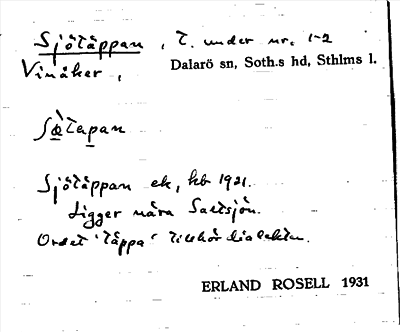 Sjötäppan, t. under nr. 1-2
Vinåker,
Dalarö sn, Soth.s hd, Sthlms l.
Sjötäppan ek, kb 1921.
Ligger nära Saltsjön.
Ordet 'täppa' tillhör dialekten.
ERLAND ROSELL 1931